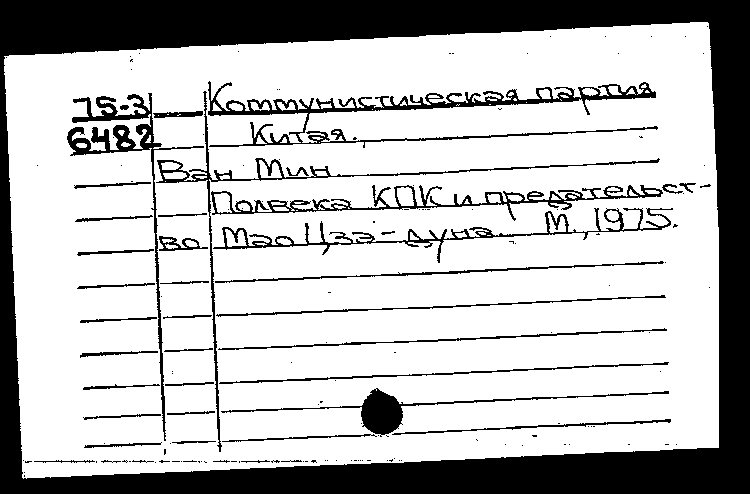 75-3 Коммунистическая партия
6482 Китая.
Ван Мин.
Полвека КПК и предательст-
во Мао Цзэ-дуна. М., 1975.